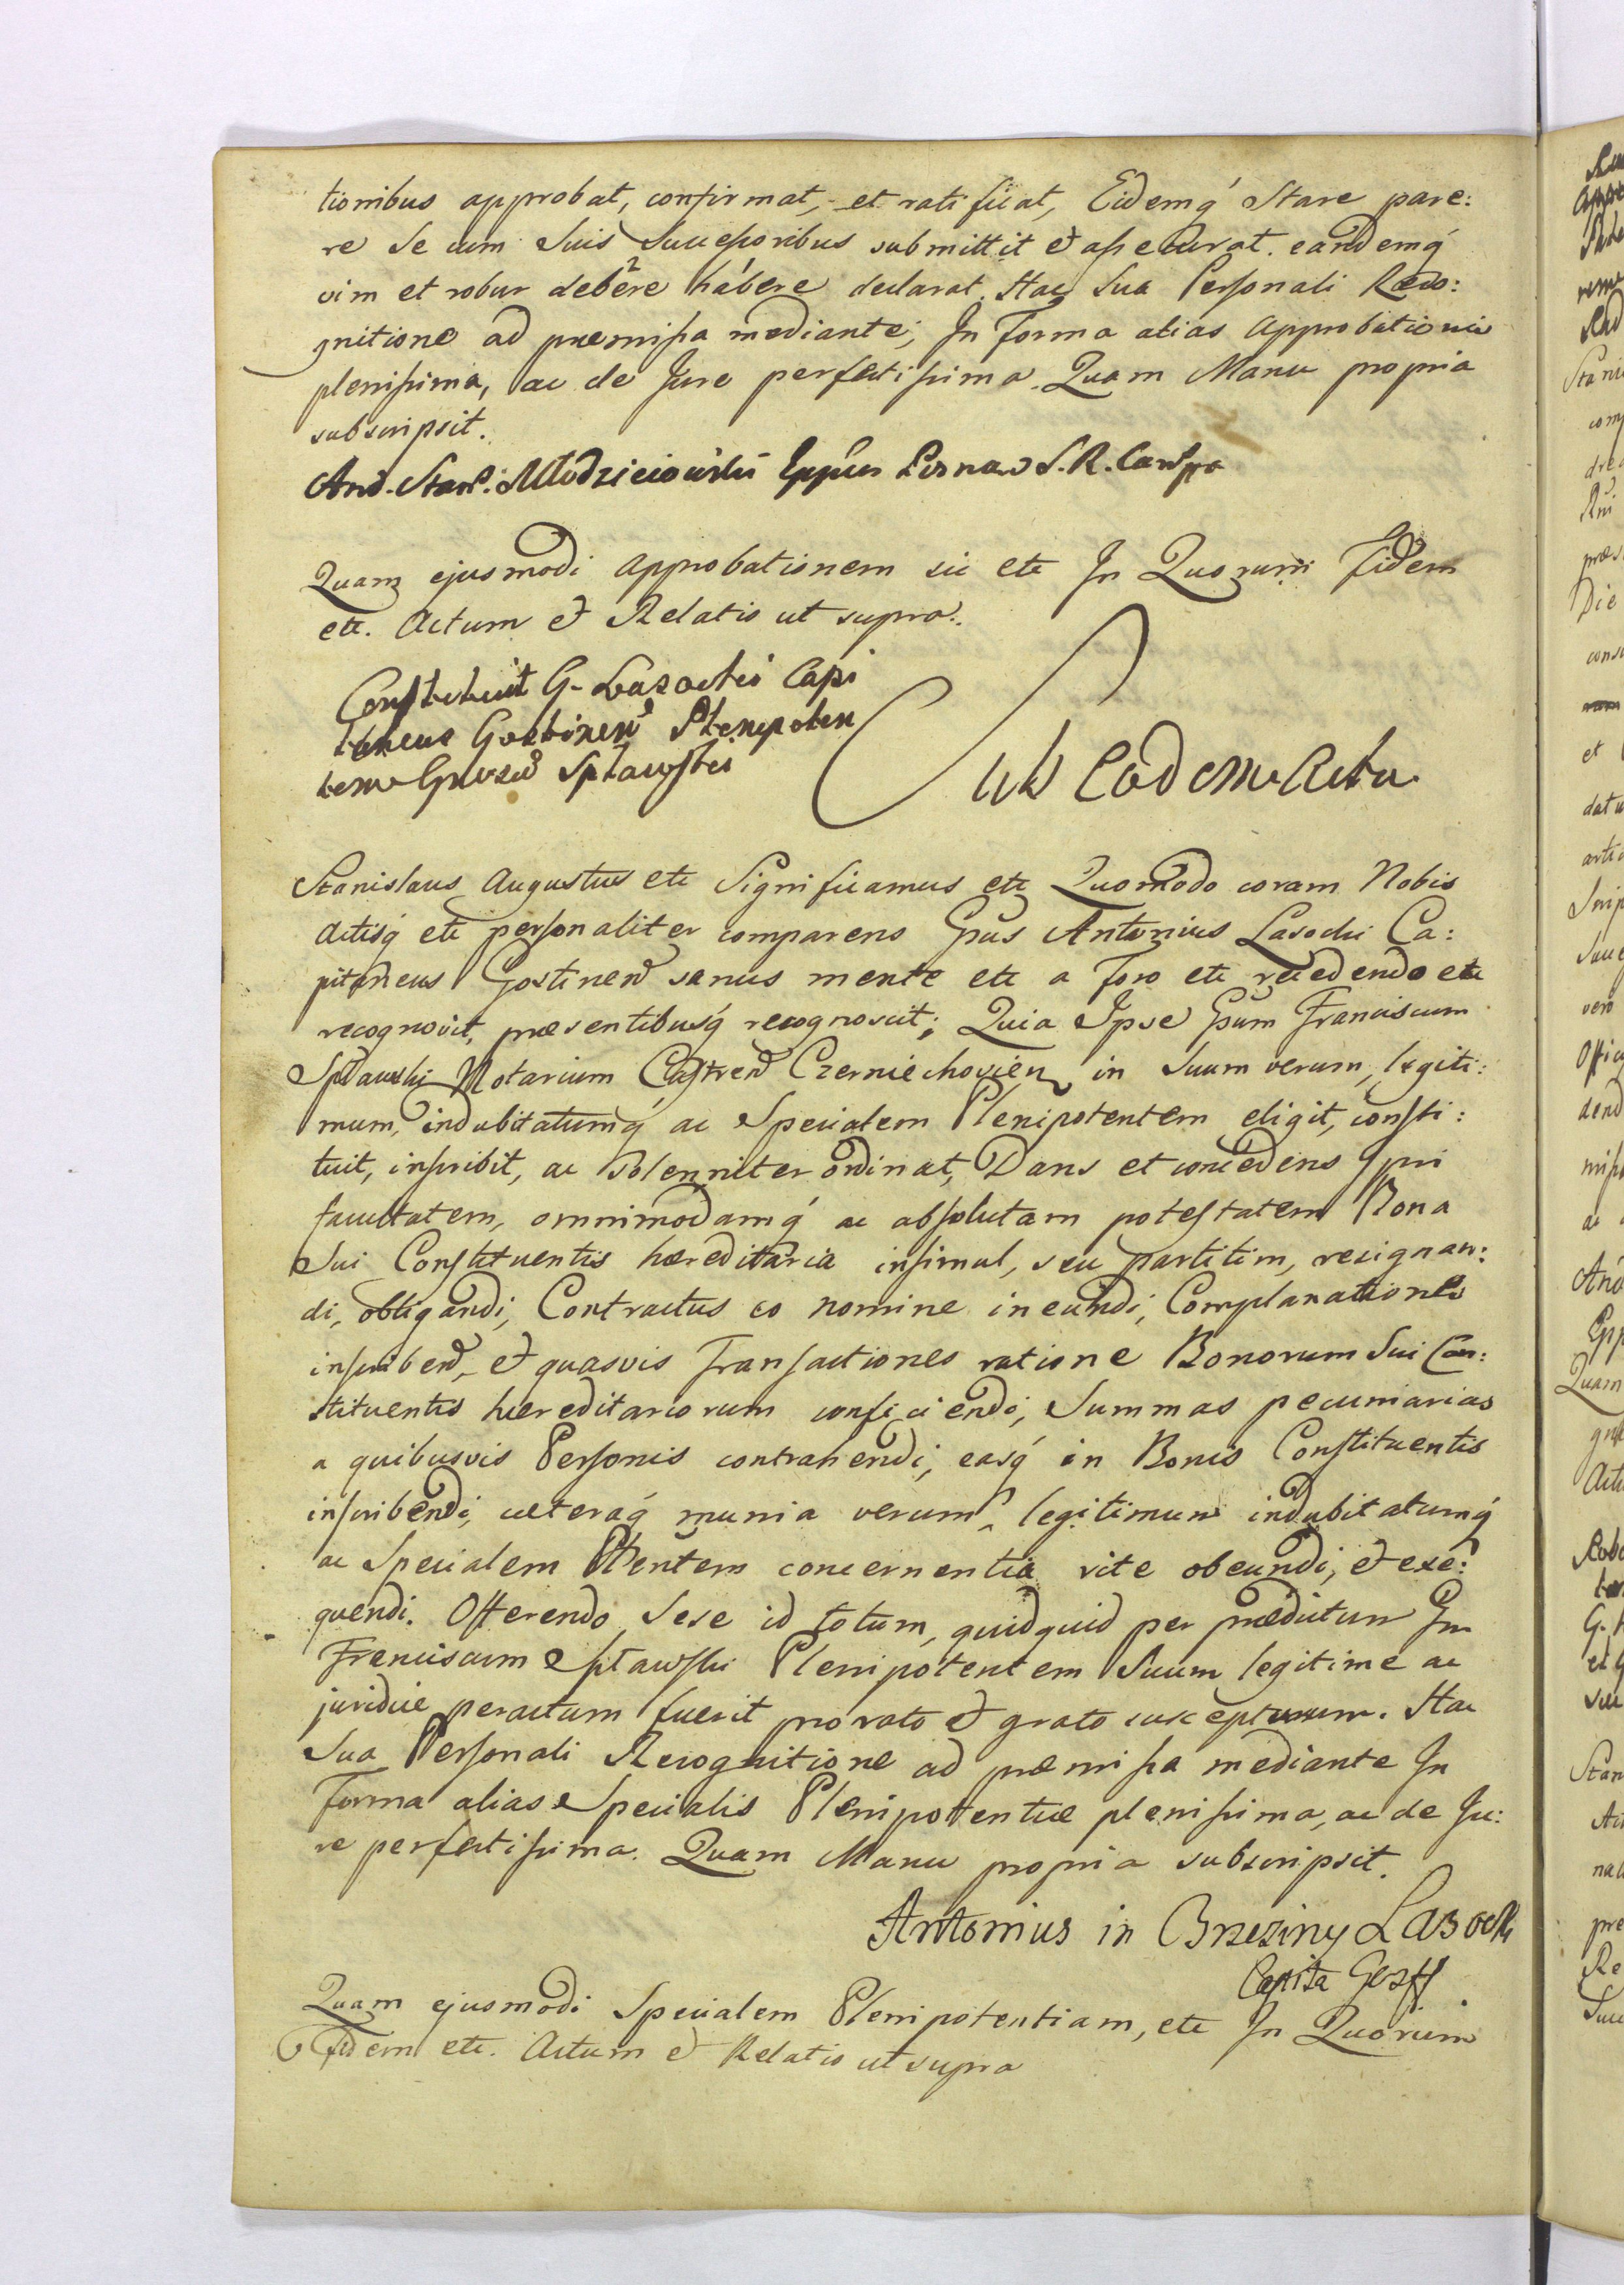 tionibus approbat, confirmat, et ratificat, Eidemq́ Stare pare:
re Se cum Suis Successoribus submittit et assecurat. eandemq́
vim et robur debere habere declarat. Hac Sua Personali Reco:
gnitione ad præmissa mediante; In Forma alias Approbationis
plenissima, ac de Jure perfectissima. Quam Manu propria
subscripsit.
And. Stan: Młodzieiowski Eppus Posnan S. R. Can
Quam ejusmodi Approbationem sic etc In Quorum Fidem
etc. Actum et Relatio ut supra.
Constituit G. Lasocki Capi
taneus Gostinen Plenipoten
tem Grosu Spławski
Sub Eodem Actu
Stanislaus Augustus etc Significamus etc Quomodo coram Nobis
Actisq́ etc personaliter comparens Gñus Antonius Lasocki Ca:
pitaneus Gostinen sanus mente etc a Foro etc recedendo etc
recognovit, præsentibusq́ recognoscit; Quia Ipse Gñum Franciscum
Spławski Notarium Castren Czerniechovien in Suum verum, legiti:
mum, indubitatumq́ ac Specialem Plenipotentem eligit, consti:
tuit, inscribit, ac solenniter ordinat, Dans et concedens Ipsi
facultatem, omnimodamq́ ac absolutam potestatem Bona
Sui Constituentis hæreditaria insimul, seu partitim, resignan:
di, obligandi, Contractus eo nomine ineundi, Complanationes
inscribend, et quasvis Transactiones ratione Bonorum Sui Con:
stituentis hæreditariorum conficiendi, Summas pecuniarias
a quibusvis Personis contrahendi, easq́ in Bonis Constituentis
inscribendi, cæteraq́ munia verum, legitimum indubitatumq́
ac Specialem Plentem concernentia rite obeundi, et exe:
quendi. Offerendo Sese id totum, quidquid per prædictum Gm
Franciscum Spławski Plenipotentem Suum legitime ac
juridice peractum fuerit pro rato et grato suscepturum. Hac
Sua Personali Recognitione ad præmissa mediante In
Forma alias Specialis Plenipotentiæ plenissima, ac de Ju:
re perfectissima. Quam Manu propria subscripsit.
Antonius in Brzeziny Lasocki
Capita Gost
Quam ejusmodi Specialem Plenipotentiam, etc In Quorum
Fidem etc. Actum et Relatio ut supra